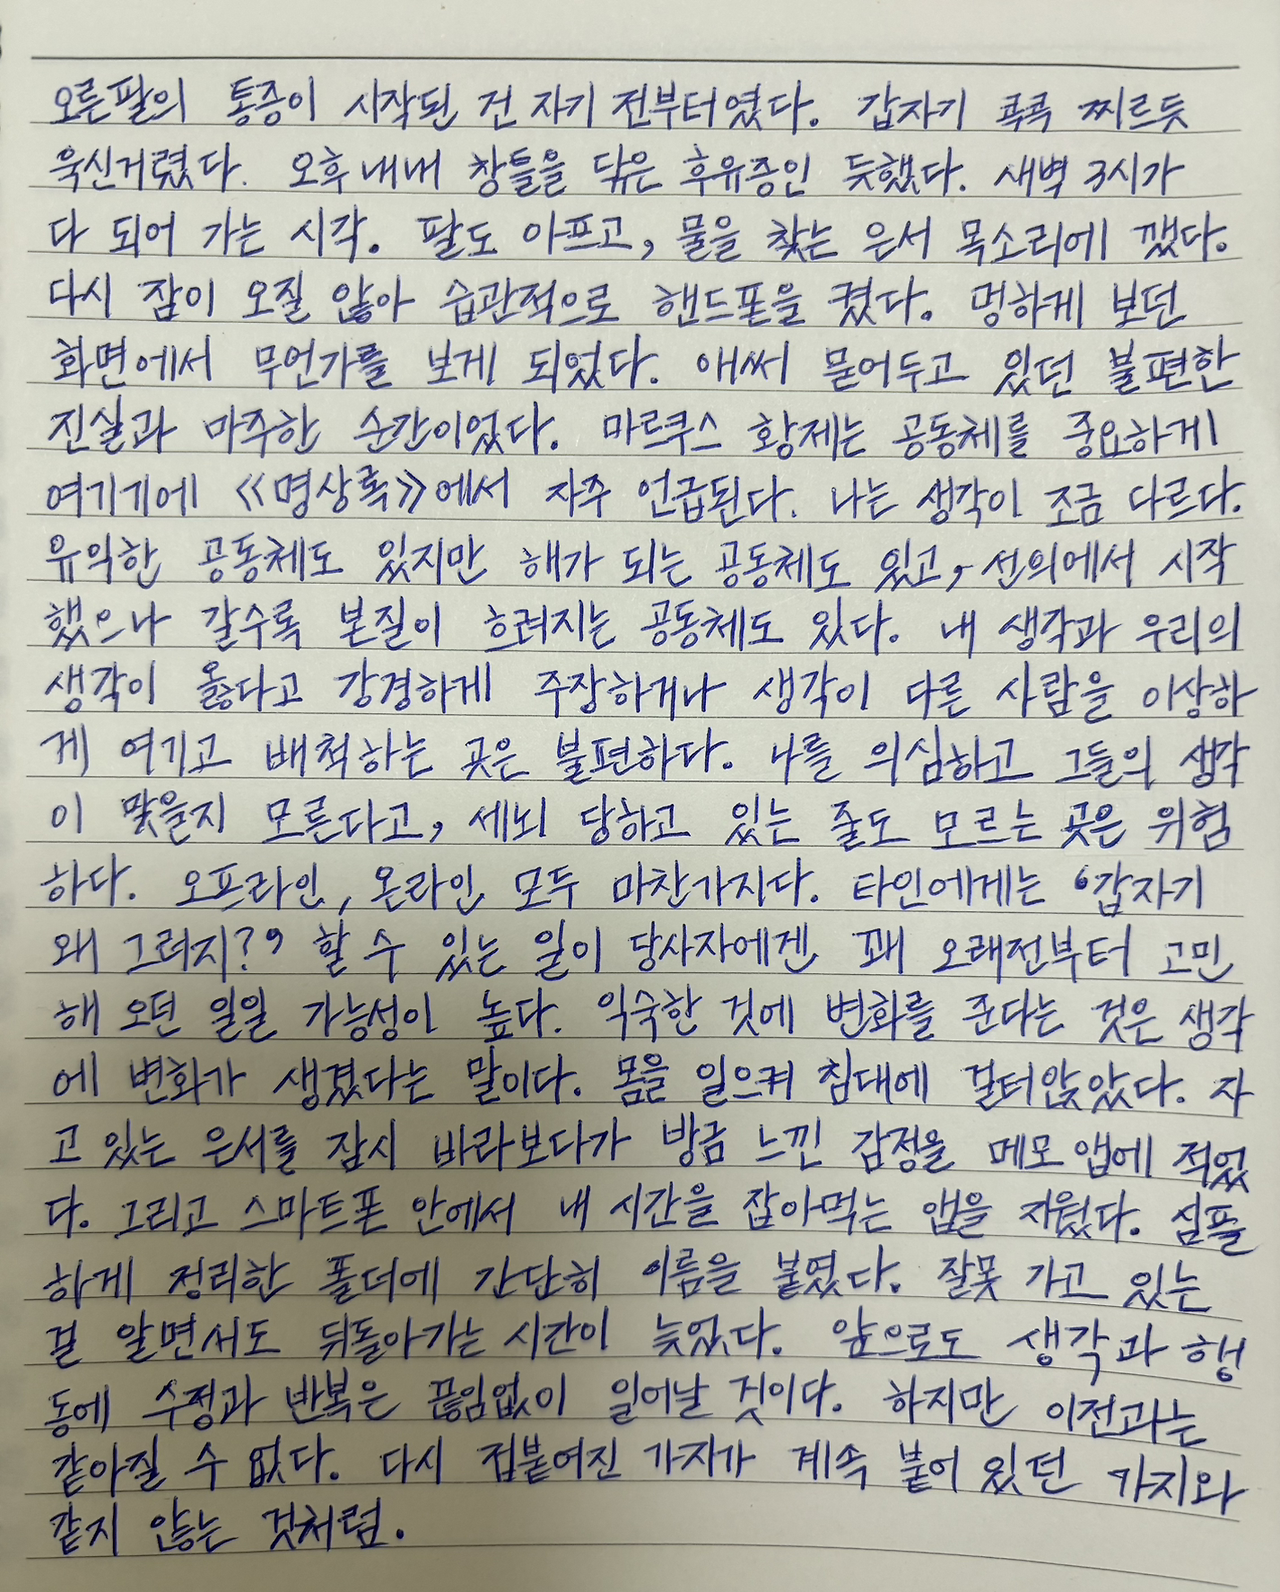 오른팔의 통증이 시작된 건 자기 전부터였다. 갑자기 콕콕 찌르듯
욱신거렸다. 오후 내내 창틀을 닦은 후유증인 듯했다. 새벽 3시가
다 되어 가는 시각. 팔도 아프고, 물을 찾는 은서 목소리에 깼다.
다시 잠이 오질 않아 습관적으로 핸드폰을 켰다. 멍하게 보던
화면에서 무언가를 보게 되었다. 애써 묻어두고 있던 불편한
진실과 마주한 순간이었다. 마르쿠스 황제는 공동체를 중요하게
여기기에 《명상록》에서 자주 언급된다. 나는 생각이 조금 다르다.
유익한 공동체도 있지만 해가 되는 공동체도 있고, 선의에서 시작
했으나 갈수록 본질이 흐려지는 공동체도 있다. 내 생각과 우리의
생각이 옳다고 강경하게 주장하거나 생각이 다른 사람을 이상하
게 여기고 배척하는 곳은 불편하다. 나를 의심하고 그들의 생각
이 맞을지 모른다고, 세뇌 당하고 있는 줄도 모르는 곳은 위험
하다. 오프라인, 온라인 모두 마찬가지다. 타인에게는 '갑자기
왜 그러지?' 할 수 있는 일이 당사자에겐 꽤 오래전부터 고민
해 오던 일일 가능성이 높다. 익숙한 것에 변화를 준다는 것은 생각
에 변화가 생겼다는 말이다. 몸을 일으켜 침대에 걸터앉았다. 자
고 있는 은서를 잠시 바라보다가 방금 느낀 감정을 메모 앱에 적었
다. 그리고 스마트폰 안에서 내 시간을 잡아먹는 앱을 지웠다. 심플
하게 정리한 폴더에 간단히 이름을 붙였다. 잘못 가고 있는
걸 알면서도 뒤돌아가는 시간이 늦었다. 앞으로도 생각과 행
동에 수정과 반복은 끊임없이 일어날 것이다. 하지만 이전과는
같아질 수 없다. 다시 접붙여진 가지가 계속 붙어 있던 가지와
같지 않는 것처럼.